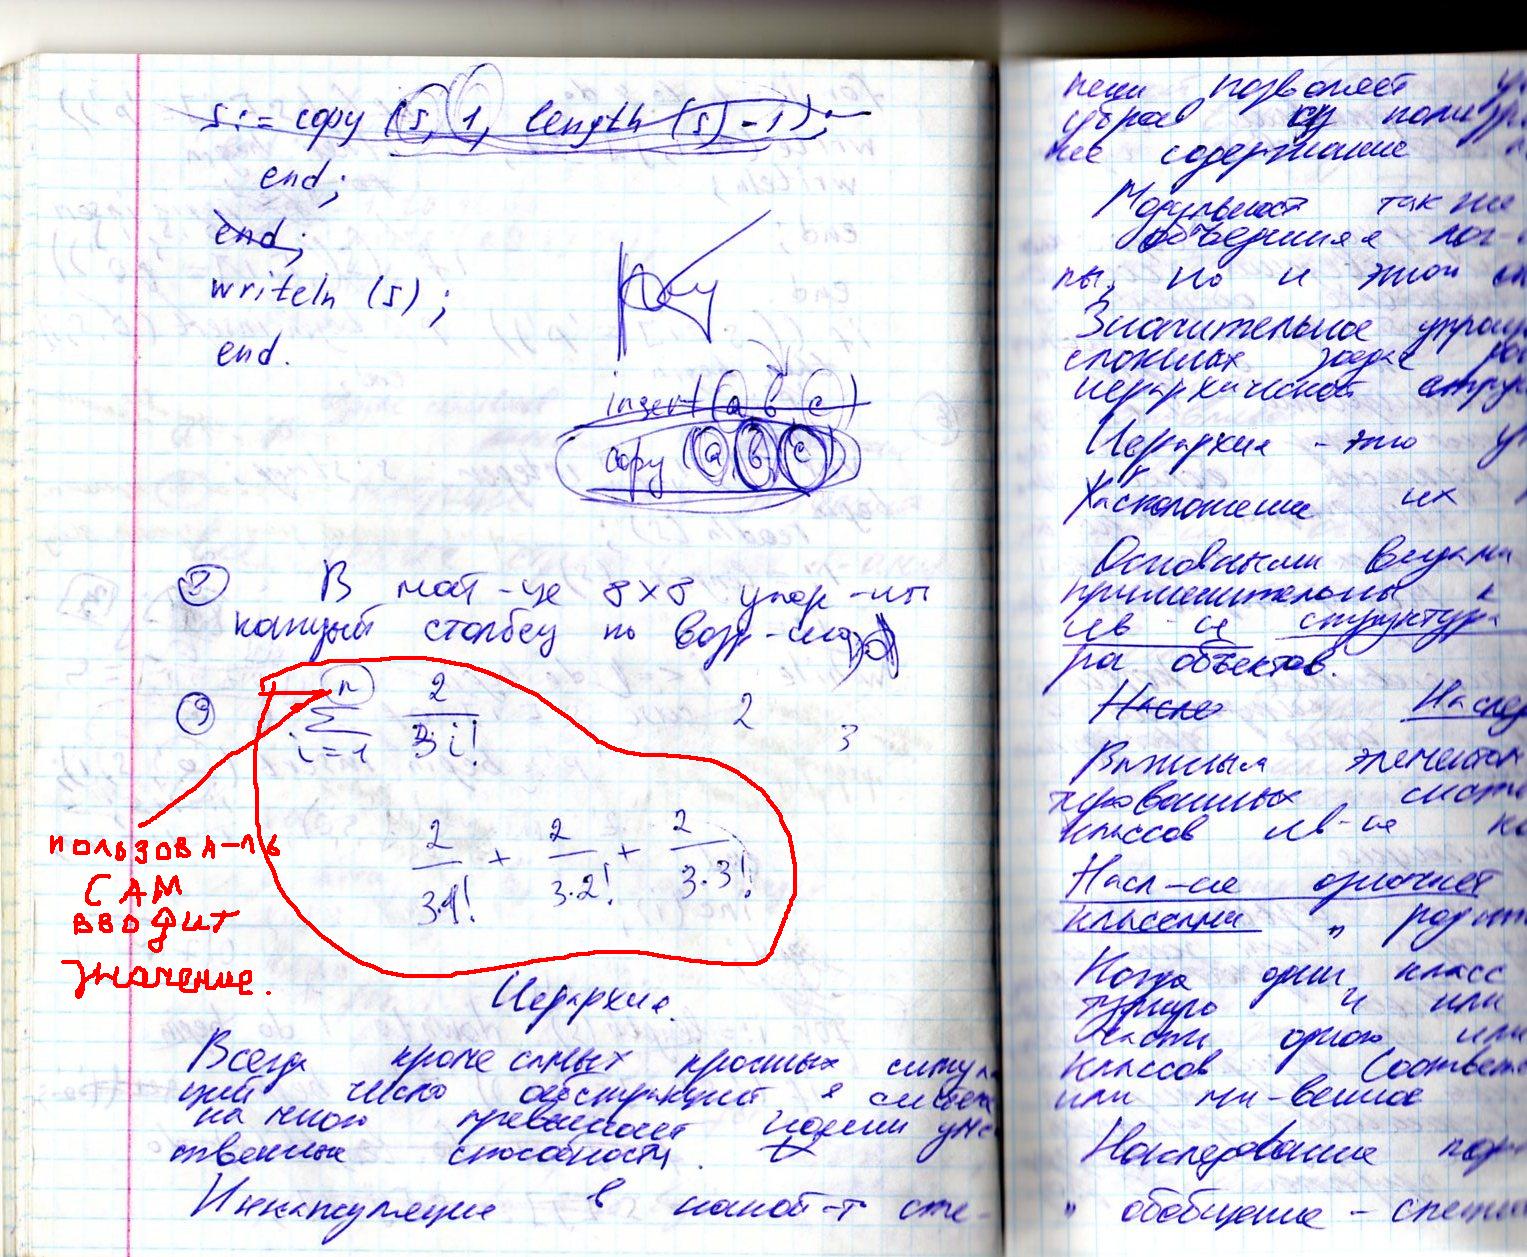 s:= copy (s, 1, length (s) - 1);
end;
end;
writeln (s);
end.
insert (a b c)
copy (a, b, c)
8 В мат-це 8x8 упор-ить
каждый столбец по возр-
9 n
∑ 2/3i! 2 3
i=1
2/3·1! + 2/3·2! + 2/3·3!
пользова-ль
сам
вводит
значение.
Иерархия.
Всегда кроме самых простых ситуа
ций число абстракций в системе
на много превышает наши умс
твенные способности.
Инкапсуляция в какой-т сте-
пени позволяет
убрав из поля зр
нее содержание
Модульность также
объединяя лог-
пы, но и этой
Значительное упрощ
сложных задач
иерархической струк
Иерархия - это у
Расположение их
Основными видами
применительны к
ив-ся структура
ра объектов.
Насле Наслед
Важным элементом
тированных систе
классов яв-ся
Насл-ие означает
классами " родит
Когда один класс
и или
части одного или
классов Соответс
или мн-венное
Наследование
" обобщение - специ